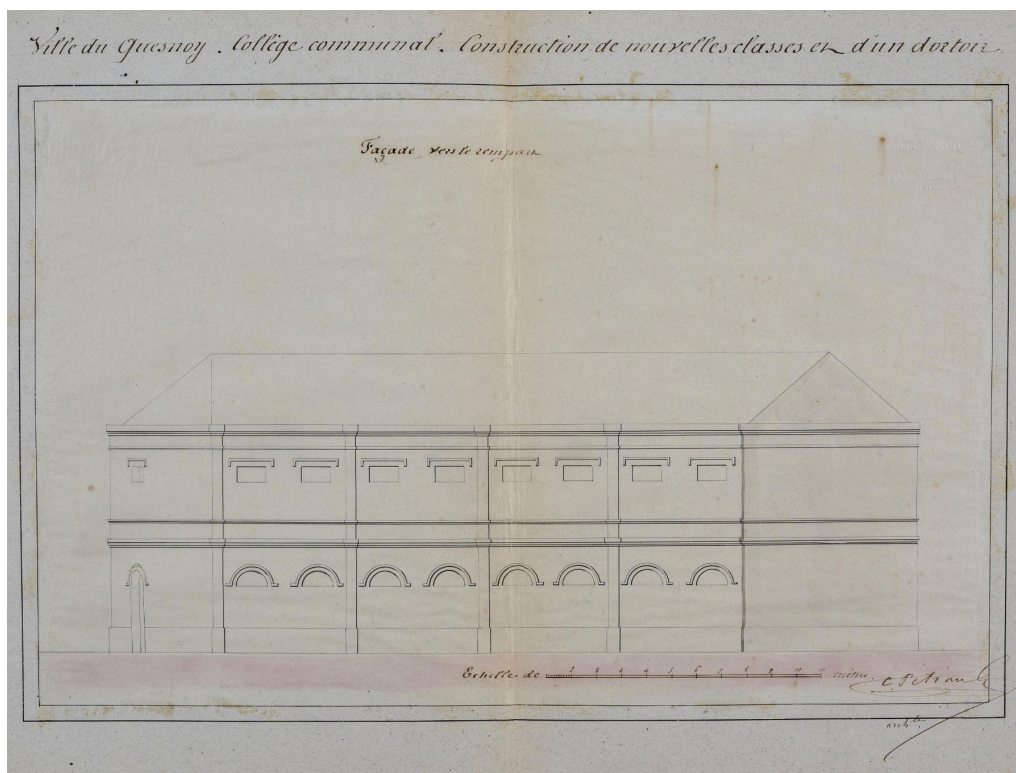 Ville du Quesnoy. Collège communal. Construction de nouvelles classes et d'un dortoir.
Façade vers le rempart
Echelle de mètres
archte